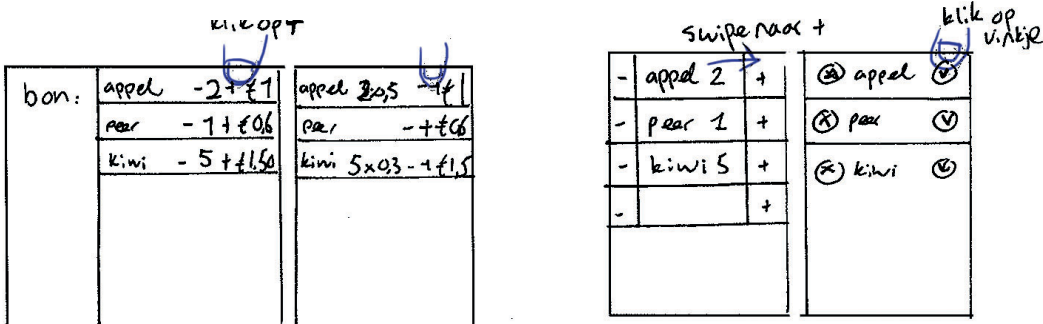 klik op +
bon:
appel - 2 + €1
peer - 1 + €0,6
kiwi - 5 + €1,50
appel 2x0,5 - + €1
peer - + €0,6
kiwi 5x0,3 - + €1,5
swipe naar +
- appel 2 +
- peer 1 +
- kiwi 5 +
- +
klik op
vinkje
x appel v
x peer v
x kiwi v